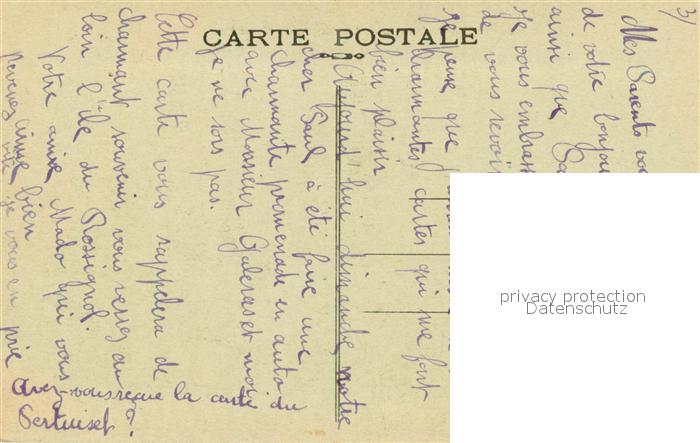 3)
CARTE POSTALE
Mes Parents vo
de votre bonjou
ainsi que
Je vous embrass
de vous revoir
que
charmantes cartes qui me font
bien plaisir
Aujourd'hui dimanche, notre
cher Paul à été faire une
charmante promenade en auto
avec Monsieur et moi
je ne sors pas.
Cette carte vous rappelera de
charmant souvenir vous verrez au
loin l'Ile du Rossignol.
Votre amie Mado qui vous
aime bien
vite je vous en prie
Avez-vous reçue la carte du
Pertuiset?
privacy protection
Datenschutz